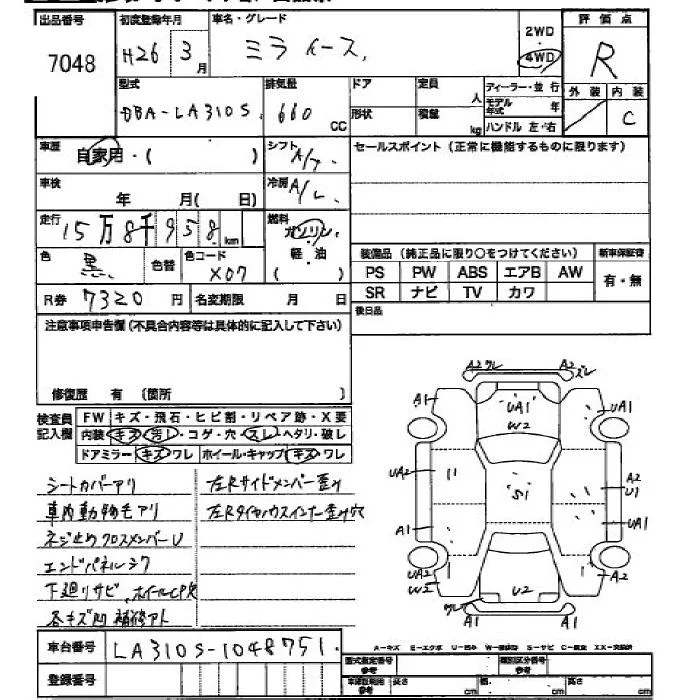 出品番号 初度登録年月 車名・グレード 2WD 評価点
7048 H26 3月 ミライース 4WD R
型式 排気量 ドア 定員 人 ディーラー・並行 外装 内装
DBA-LA310S 660 CC 形状 積載 kg モデル年式 年 C
ハンドル 左・右
車歴 自家用・( ) シフト A/T セールスポイント(正常に機能するものに限ります)
車検 年 月( 日) 冷房 A/C
走行 15万8千958km 燃料 ガソリン
色 黒 色替 色コード X07 軽油 ( ) 装備品(純正品に限り○をつけてください) 新車保証書
PS PW ABS エアB AW 有・無
R券 7320円 名変期限 月 日 SR ナビ TV カワ
後日品
注意事項申告欄(不具合内容等は具体的に記入して下さい)
修復歴 有 (箇所 )
検査員記入欄 FW キズ・飛石・ヒビ割・リペア跡・X要
内装 キズ・汚し・コゲ・穴・スレ・ヘタリ・破レ
ドアミラー キズ・ワレ ホイール・キャップ キズ・ワレ
シートカバーアリ 左Rサイドメンバー歪み
車内動物毛アリ 左Rタイヤハウスインナー歪み穴
ネジ止めクロスメンバーU
エンドパネルシワ
下廻りサビ、ホイールCPK
各キズ凹 補修アト
A2 ワレ A2 ズレ
A1 UA1 W2 UA1
UA2 S1 A2 U1
A1 UA1
UA2 W2 U2 A2
ワレ A1
車台番号 LA310S-1048751
登録番号
型式指定番号 参考 類別区分番号 参考
長さ cm 幅 cm 高さ cm